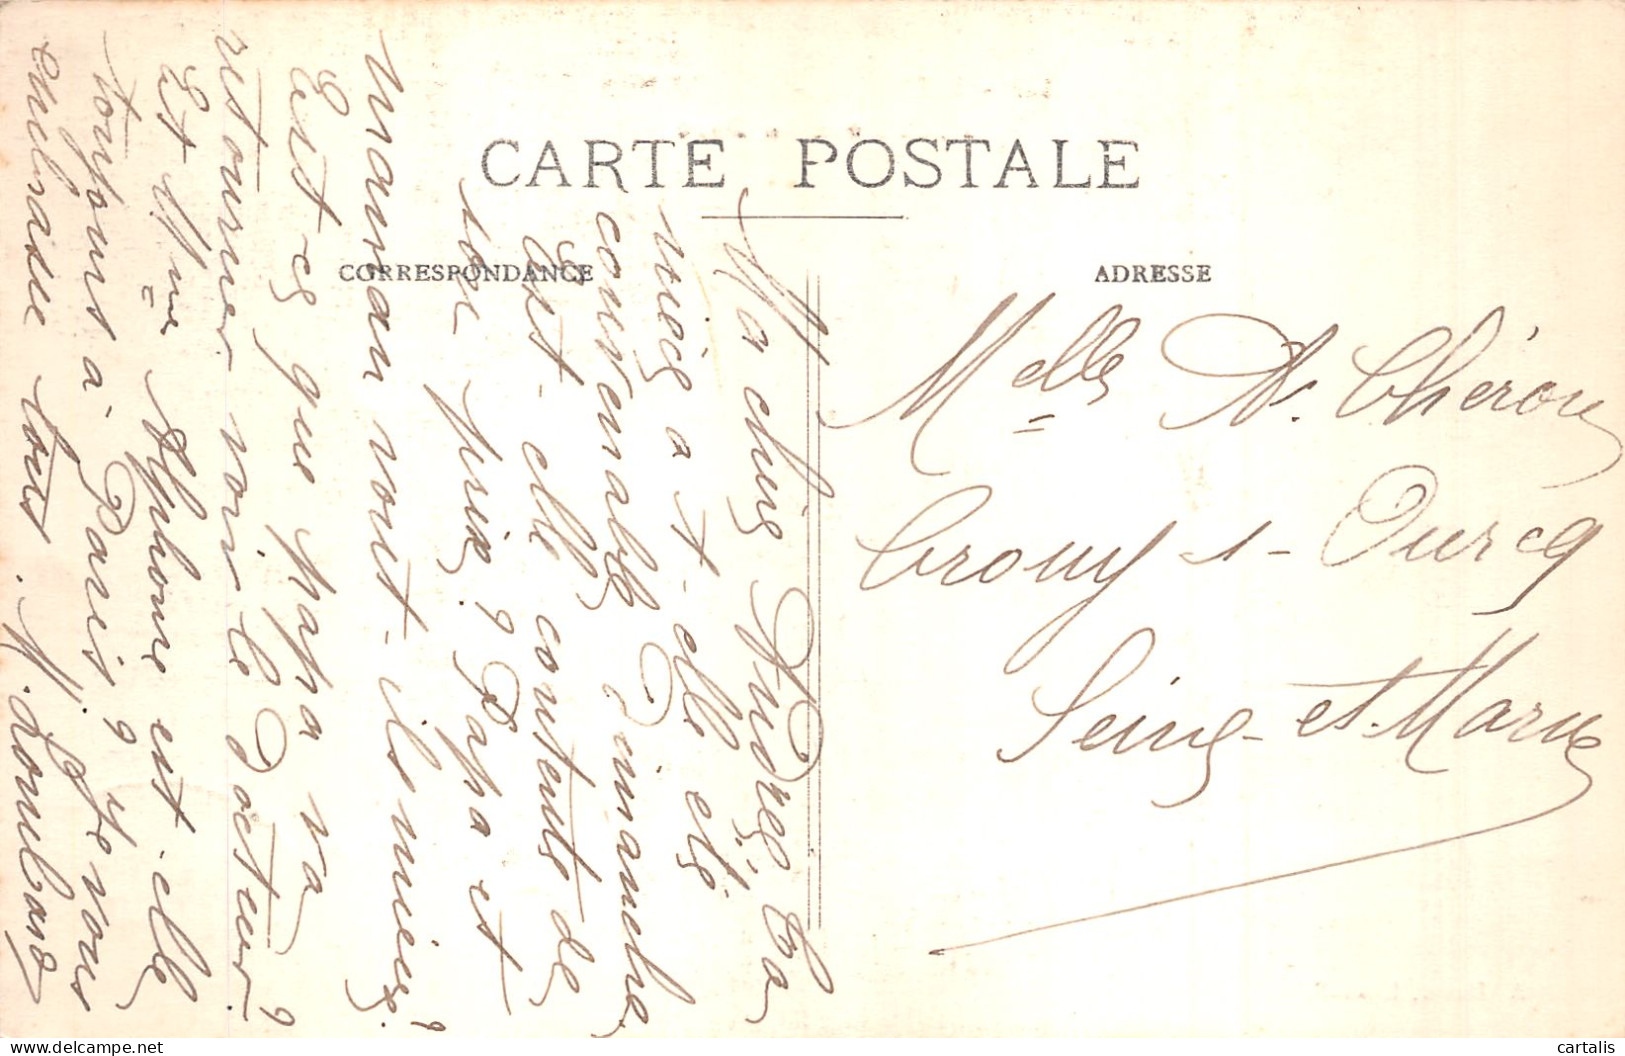 CARTE POSTALE
CORRESPONDANCE
ADRESSE
Ma chère Andrée, ta
nièce a-t-elle été
convenable Dimanche,
Est-elle contente de
son prix? Papa et
maman vont-ils mieux?
Est-ce que papa va
retourner voir le Docteur?
Et Mme Alphonse est-elle
toujours à Paris? Je vous
embrasse tous. M.
Melle A. Théron
Crouy-s-Ourcq
Seine-et-Marne
cartalis